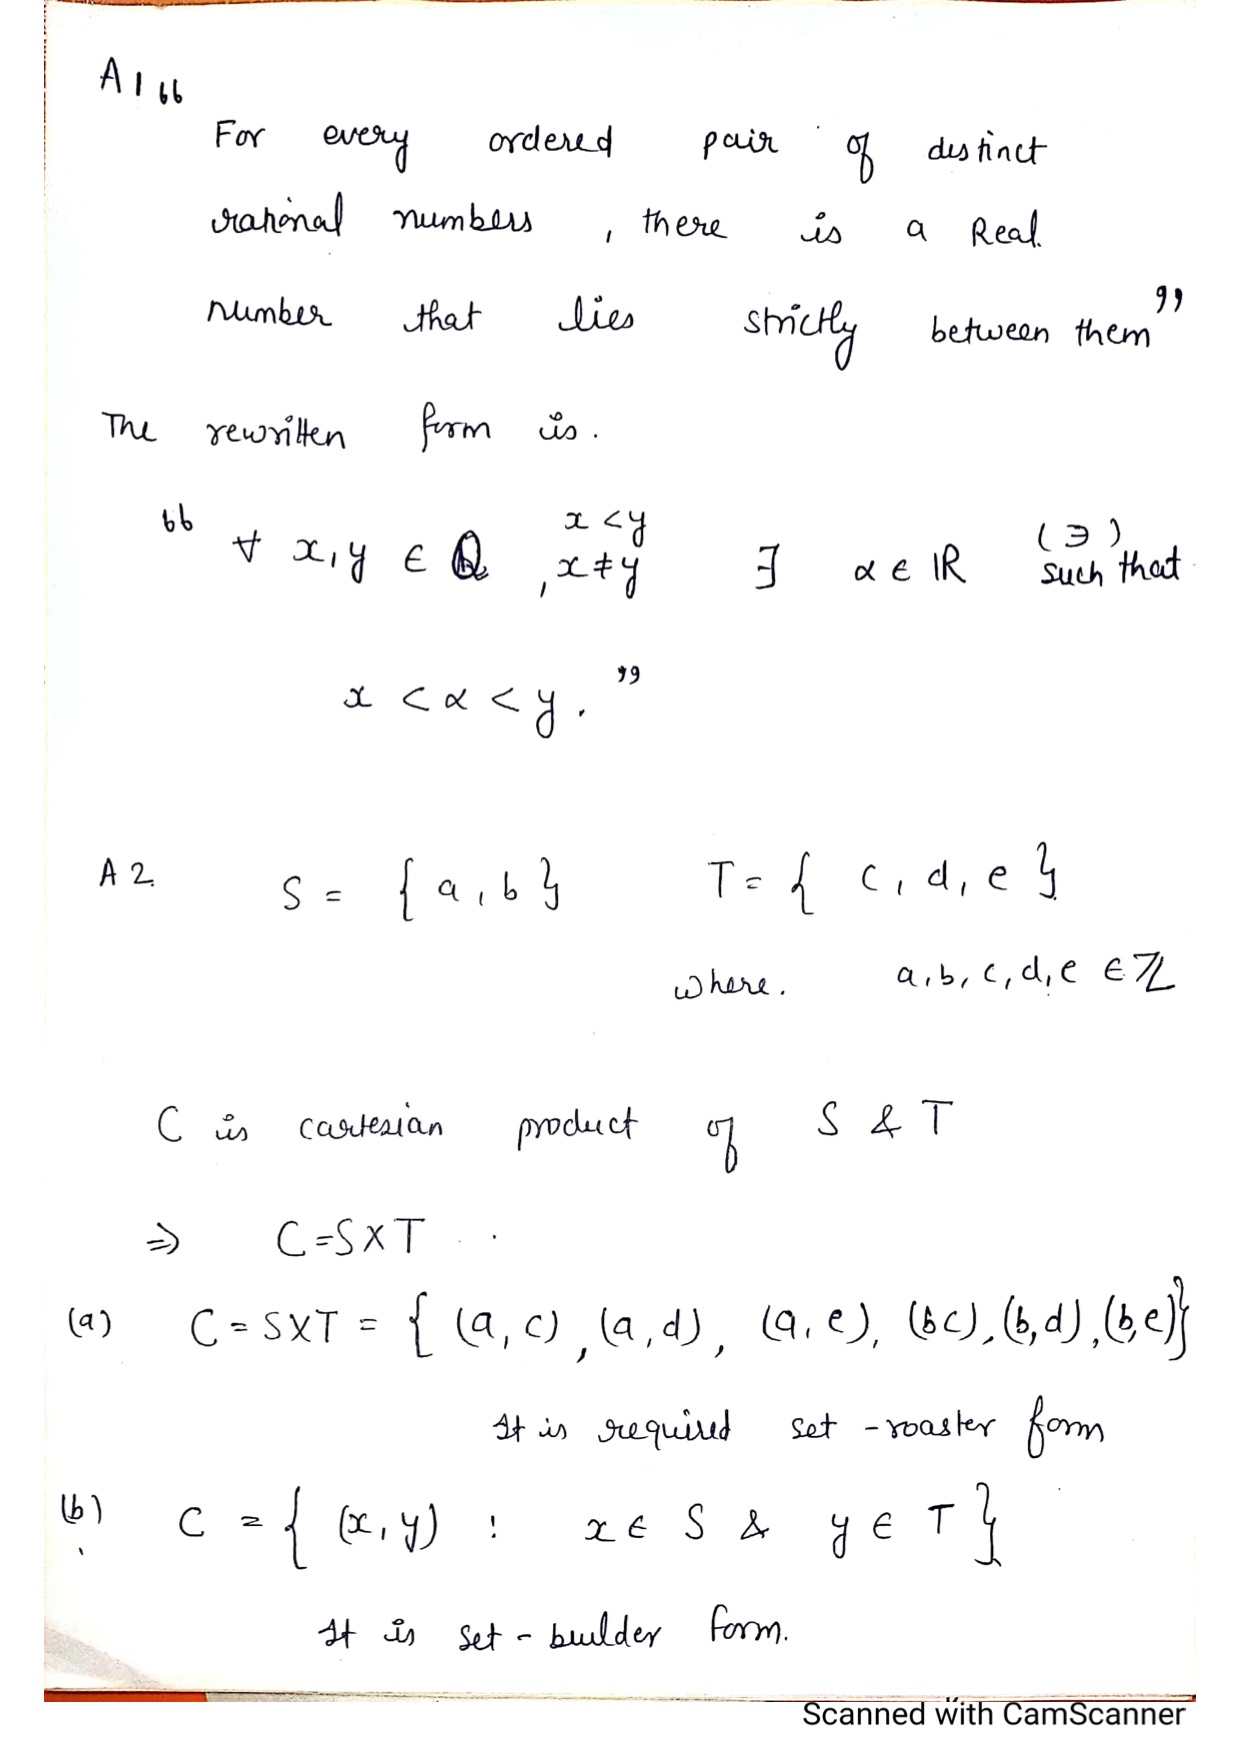 A1 “
For every ordered pair of distinct
rational numbers , there is a Real
number that lies strictly between them ”
The rewritten form is .
“ ∀ x, y ∈ Q , x < y x ≠ y ∃ α ∈ ℝ (∋) such that
x < α < y . ”
A 2. S = { a , b } T = { c , d , e }
where. a, b, c, d, e ∈ ℤ
C is cartesian product of S & T
⇒ C = S X T
(a) C = S X T = { (a, c) , (a, d) , (a, e), (b c), (b, d) , (b, e)}
It is required set - roaster form
(b) C = { (x, y) : x ∈ S & y ∈ T }
It is set - builder form.
Scanned with CamScanner